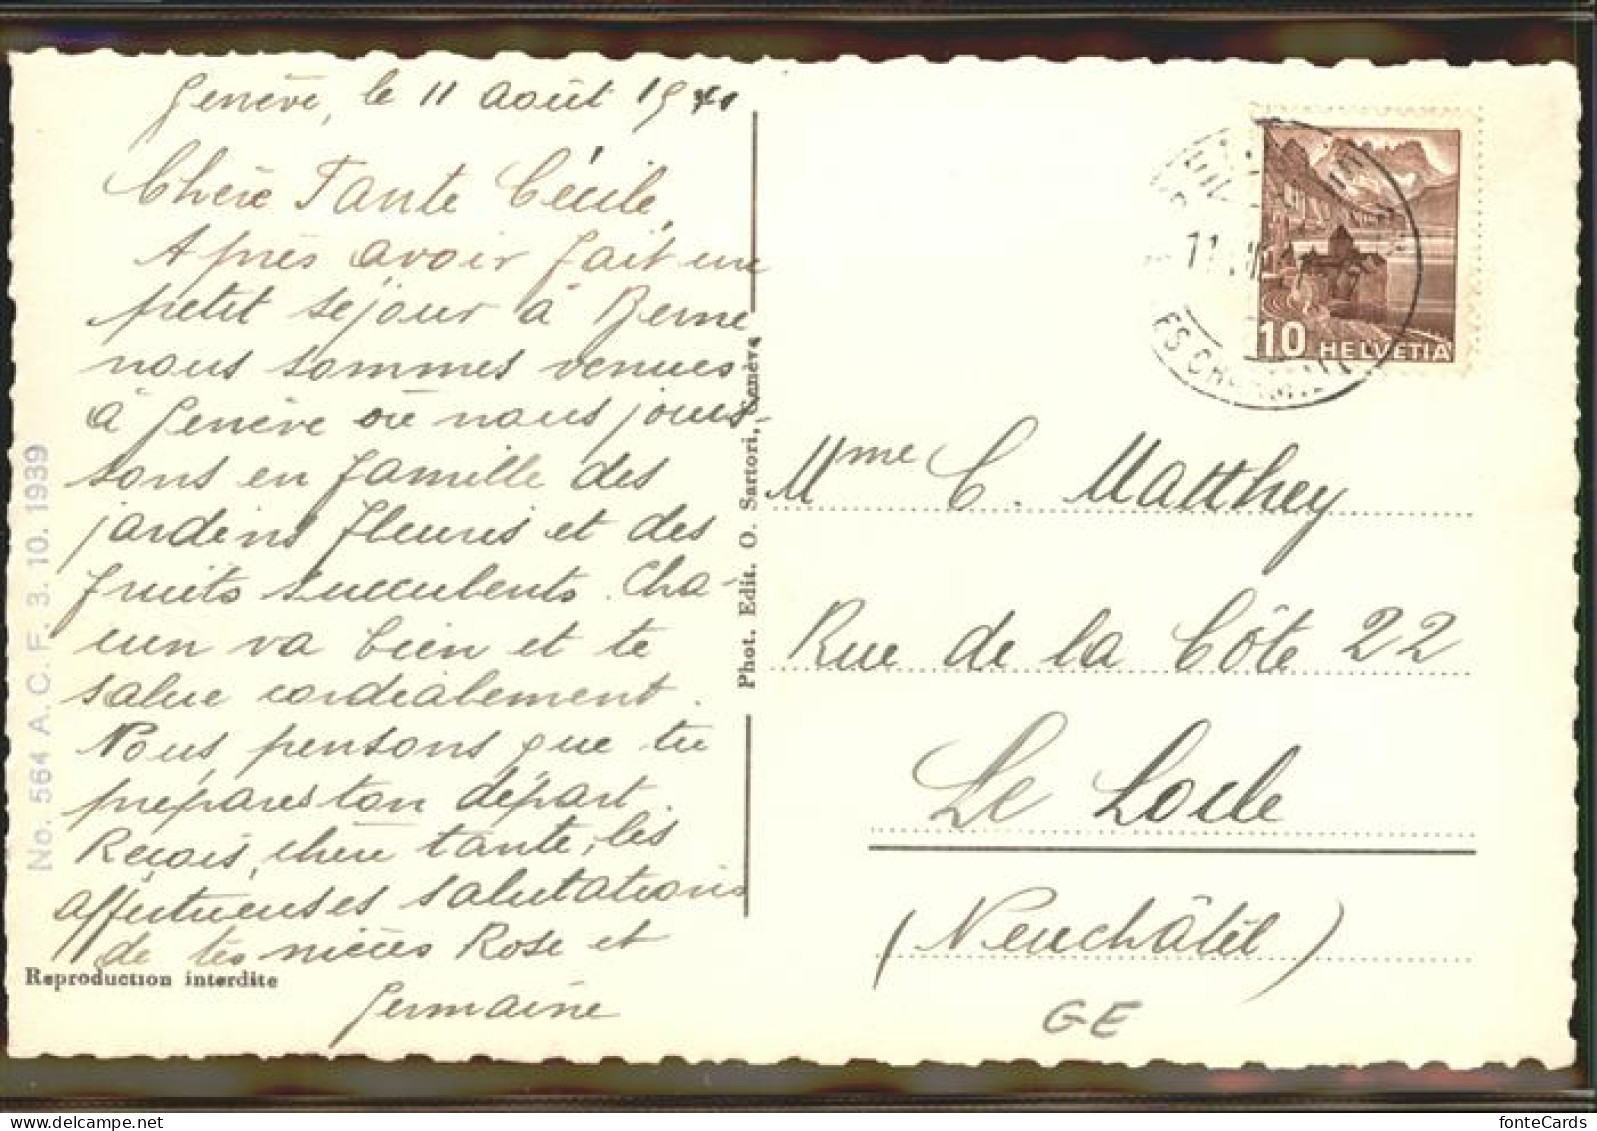 Genève, le 11 août 1941
Chère Tante Cécile,
Après avoir fait un
petit séjour à Berne
nous sommes venues
à Genève où nous jouis-
sons en famille des
jardins fleuris et des
fruits succulents. Cha-
cun va bien et te
salue cordialement.
Nous pensons que tu
prépares ton départ.
Reçois, chère tante, les
affectueuses salutations
de tes nièces Rose et
Germaine
Reproduction interdite
No. 564 A. C. F. 3. 10. 1939
Phot. Edit. O. Sartori, Genève
10 HELVETIA
Mme C. Matthey
Rue de la Côte 22
Le Locle
(Neuchâtel)
GE
fonteCards